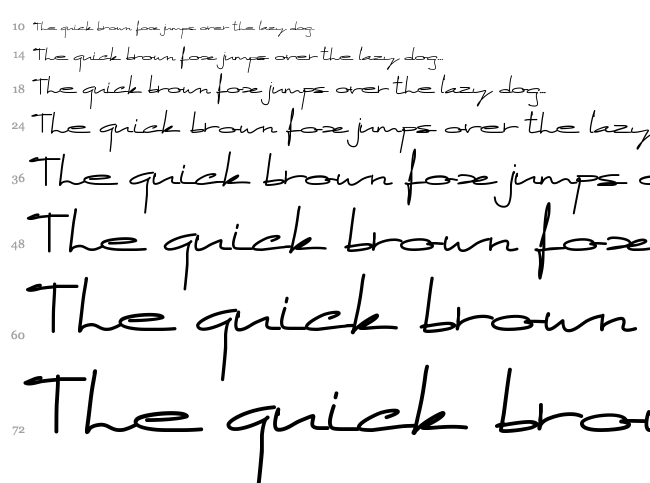 10 The quick brown fox jumps over the lazy dog...
14 The quick brown fox jumps over the lazy dog...
18 The quick brown fox jumps over the lazy dog...
24 The quick brown fox jumps over the lazy
36 The quick brown fox jumps o
48 The quick brown fox
60 The quick brown
72 The quick brow